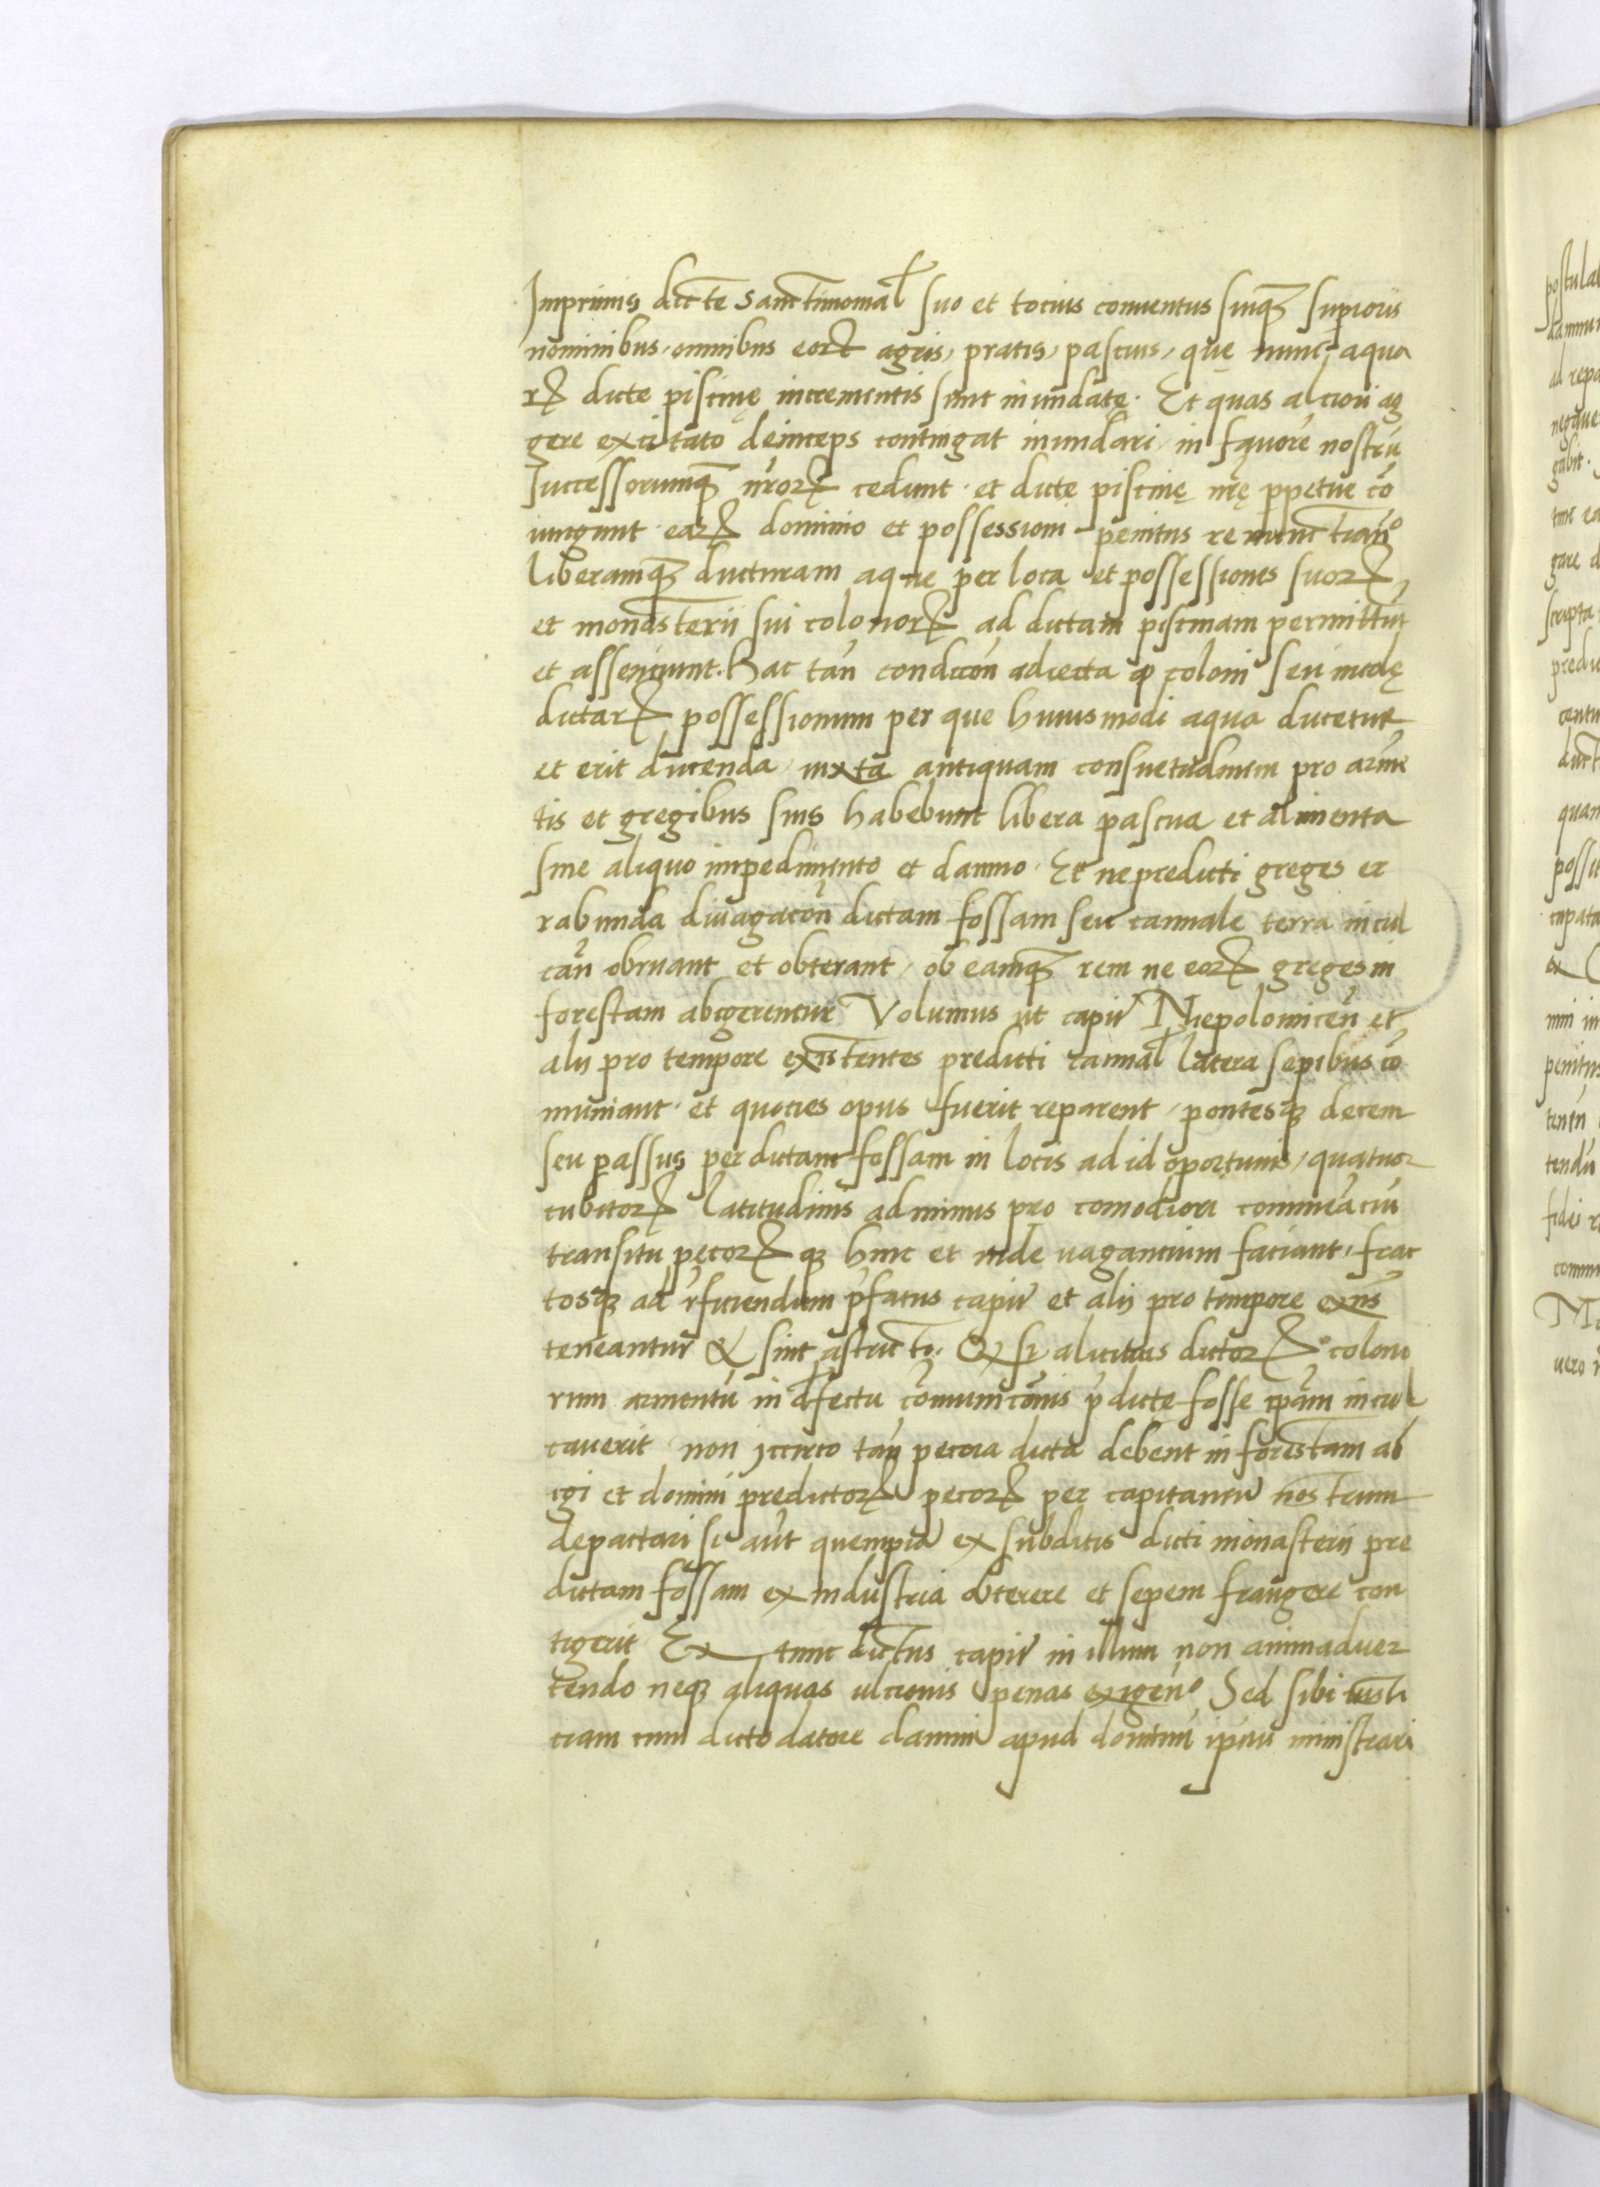 Imprimis dicte Sanctimonial suo et tocius conventus suiqꝫ supioris
nominibus, omnibus eorꝝ agris, pratis, pascuis, quę nunc aqua
rꝝ dicte piscinę incrementis sunt inundatę. Et quas alciori ag
gere excitato deinceps contingat inundari, in favore nostrū
successorumqꝫ nr̄orꝝ cedunt, et dicte piscinę nr̄ę ppetue cō
iungunt, earꝝ dominio et possessioni penitus renunctian̄
liberamqꝫ ducturam aque per loca et possessiones suorꝝ
et monasterii sui colonorꝝ ad dictam piscinam permittūt
et assenciunt. Hac tn̄ condicōn adiecta ꝙ coloni seu incolę
dictarꝝ possessionum per que huiusmodi aqua ducetur
et erit ducenda, iuxta antiquam consuetudinem pro arme
tis et gregibus suis habebunt libera pascua et alimenta
sine aliquo impedimento et damno. Et ne predicti greges er
rabunda divagacōn dictam fossam seu cannale terra incul
can̄ obruant et obterant, ob eamqꝫ rem ne eorꝝ greges in
forestam abigerentur Volumus ut capīr Niepolomicen̄ et
alii pro tempore existentes predicti cannal latera sepibus cō
muniant, et quocies opus fuerit reparent, pontesqꝫ decem
seu passus per dictam fossam in locis ad id oportunis, quatuor
cubitorꝝ latitudinis ad minus pro comodiori commeaciū
transitu pecorꝝ qꝫ hinc et inde vagancium faciant, frac
tosqꝫ ad rficiendum pfatus capīr et alii pro tempore exn̄s
teneantur & sint astricti. Et si alicuius dictorꝝ colono
rum armentū in dfectu cōmunicōnis pdicte fosse ipam incul
caverit non iccirco tn̄ pecora dicta debent in forestam ab
igi et domini predictorꝝ pecorꝝ per capitaneū nostrum
depactari si aūt quempia ex subditis dicti monasterii pre
dictam fossam ex industria obterere et sepem frangere con
tigerit Ex tunc dictus capīr in illum non animadver
tendo neqꝫ aliquas ulcionis penas exigen̄ Sed sibi iusti
ciam cum dicto datore damni apud dominū ipīus ministrari